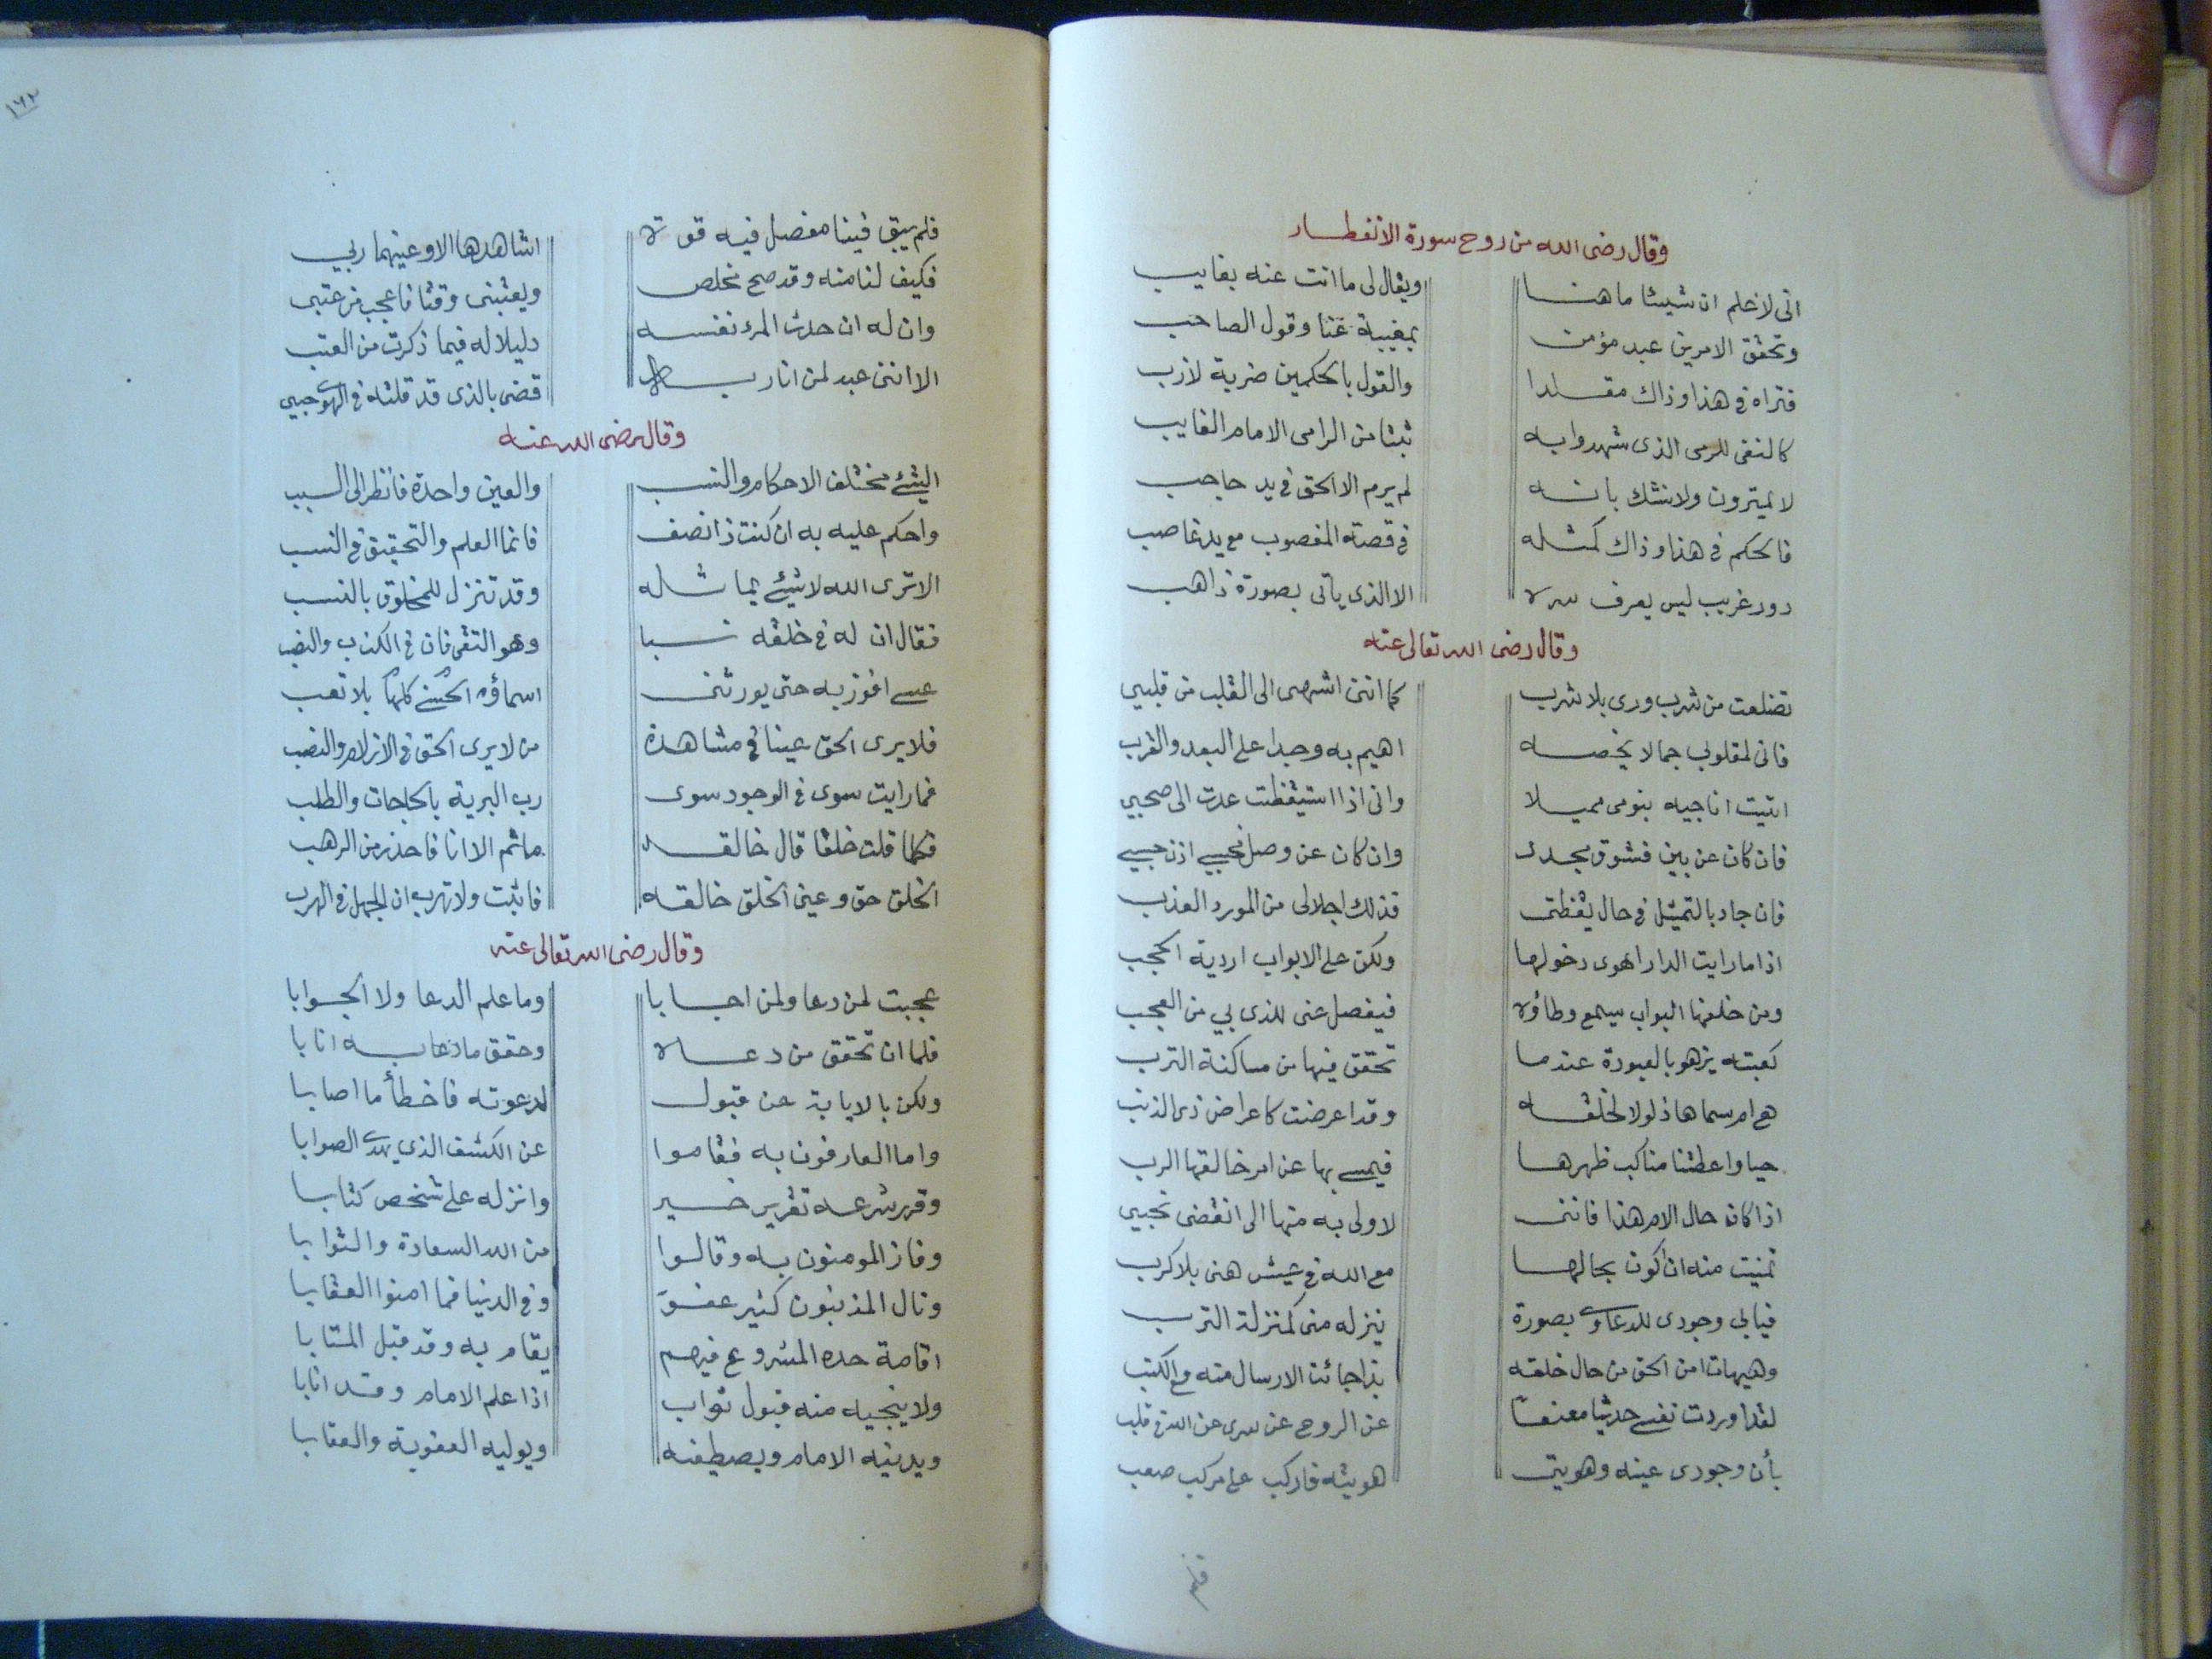 وقال رضى الله من روح سورة الانفطار
انى لاعلم ان شيئا ما هنا ويقال لى ما انت عنه بغايب
وتحقق الامرين عبد مؤمن بمغيبة عنا وقول الصاحب
فتراه فى هذا وذاك مقلدا والقول بالحكمين ضربة لازب
كالنفى للرمى الذى شهدوا به ثبتا من الرامى الامام الغايب
لا يمترون ولا نشك بانه لم يرم الا الحق فى يد حاجب
فالحكم فى هذا وذاك كمثله فى قصة المغصوب مع يد غاصب
دور غريب ليس يعرف سره الا الذى يأتى بصورة ذاهب
وقال رضى الله تعالى عنه
تضلعت من شرب وردى بلا شرب كما اننى اشهى الى القلب من قلبى
فانى لمقلوبى جمالا يخصه اهيم به وجدا على البعد والقرب
اتيت اناجيه بنومى مميلا وانى اذا استيقظت عدت الى صحبى
فان كان عن بين فشوق مجدد وان كان عن وصل فحبى اذن حسبى
فان جاد بالتمثل فى حال يقظتى فذلك اجلالى من المورد العذب
اذا ما رايت الدار اهوى دخولها ولكن على الابواب اردية الحجب
ومن خلفها البواب يسمع وطاؤه فيفصل عنى للذى بي من العجب
كعبته يزهو بالعبودة عندما تحقق فيها من مساكنة الترب
هى ام سماها ذلولا لخلقه وقد اعرضت كاعراض ذى الذنب
حيا واعطتنا مناكب ظهرها فيمسى بها عن امر خالقها الرب
اذا كان حال الام هذا فاننى لاولى به منها الى انقضى نحبى
تمنيت منه ان اكون بحالها مع الله فى عيش هنى بلا كرب
فيابى وجودى للدعاوى بصورة ينزله منى كمنزلة الترب
وهيهات امن الحق من حال خلقه بذا جائت الارسال منه مع الكتب
لقد اوردت نفسى حديثا معنعنا عن الروح عن سرى عن الله فى قلب
بأن وجودى عينه وهويتى هويته فاركب على مركب صعب
فلم
١٦٢
فلم يبق فينا مفصل فيه قوة اشاهدها الا وعينهما ربي
فكيف لنا منه وقد صح مخلص ويعتبنى وقتا فاعجب من عتبى
وان له ان حدث المرء نفسه دليلا له فيما ذكرت من العتب
الا اننى عبد لمن انا ربه قضى بالذى قد قلته فى الهوى حبى
وقال رضى الله عنه
الشئ مختلف الاحكام والنسب والعين واحدة فانظر الى السبب
واحكم عليه به ان كنت ذا نصف فانما العلم والتحقيق فى النسب
الا ترى الله لا شيئ يماثله وقد تنزل للمخلوق بالنسب
فقال ان له فى خلقه نسبا وهو التقى فان فى الكذب والنصب
عسى افوز به حتى يورثنى اسماؤه الحسنى كلها بلا تعب
فلا يرى الحق عينا فى مشاهدة من لا يرى الحق فى الازلام والنصب
فما رايت سوى فى الوجود سوى رب البرية بالحاجات والطلب
فكلما قلت خلقا قال خالقه ما ثم الا انا فاحذر من الرهب
الخلق حق وعين الخلق خالقه فاثبت ولا تهرب ان الجهل فى الهرب
وقال رضى الله تعالى عنه
عجبت لمن دعا ولمن اجابا وما علم الدعا ولا الجوابا
فلما ان تحقق من دعاه وحقق ما دعا به انابا
ولكن بالاباية عن قبول لدعوته فاخطأ ما اصابا
واما العارفون به فقاموا عن الكشف الذي يهدى الصوابا
وقرر شرعه تقرير خبير وانزله على شخص كتابا
وفاز المومنون به وقالوا من الله السعادة والثوابا
ونال المذنبون كثير عفو وفى الدنيا فما امنوا العقابا
اقامة حده المشروع فيهم يقام به وقد قبل المتابا
ولا ينجيه منه قبول تواب اذا علم الامام وقد انابا
ويدنيه الامام ويصطفيه ويوليه العقوبة والعقابا